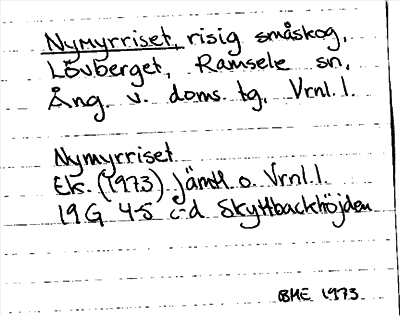 Nymyrriset, risig småskog,
Lövberget, Ramsele sn,
Ång. v. doms. tg. Vrnl. l.
Nymyrriset
Ek. (1973) Jämtl. o. Vrnl. l.
19G 4-5 c-d Skyttbackhöjden
BHE 1973